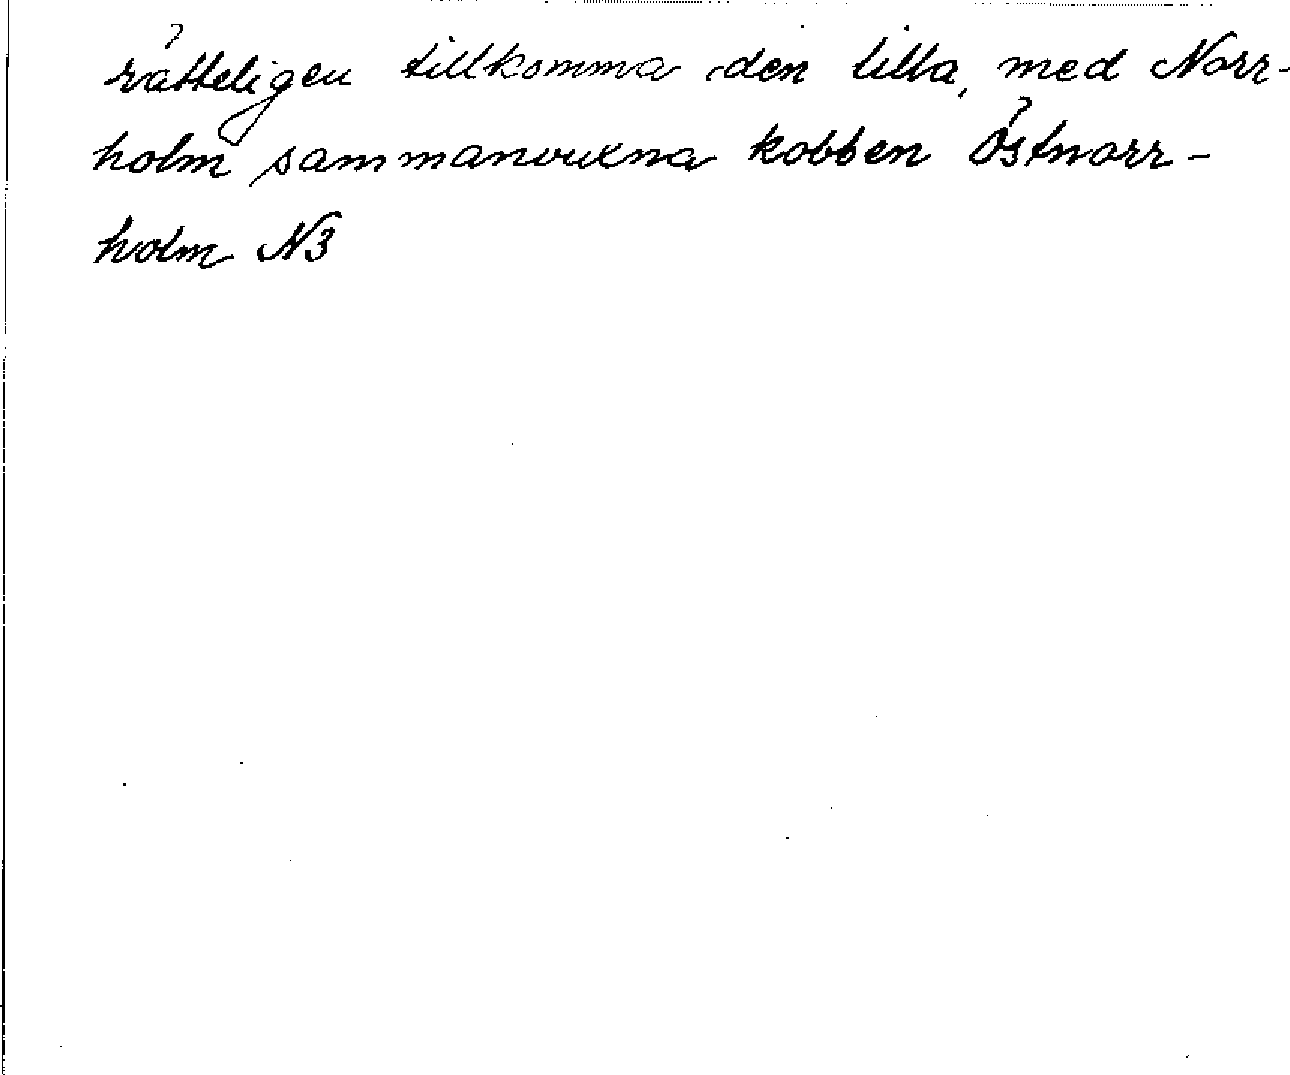 rätteligen tillkomma den lilla, med Norr-
holm sammanvuxna kobben Östnorr-
holm N3